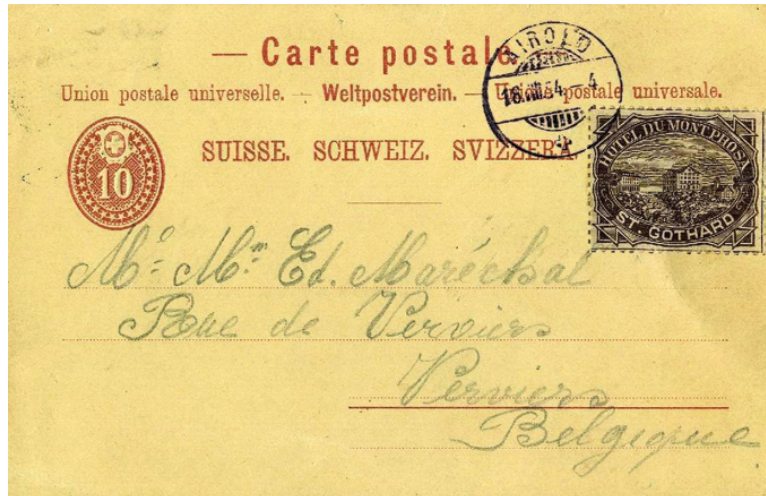 — Carte postale. —
Union postale universelle. — Weltpostverein. — Unione postale universale.
SUISSE. SCHWEIZ. SVIZZERA.
10
AIROLO
16. VIII 54 – 4
HOTEL DU MONT PROSA
ST. GOTHARD
Mr. Mr. Ed. Maréchal
Rue de Verviers
Verviers
Belgique